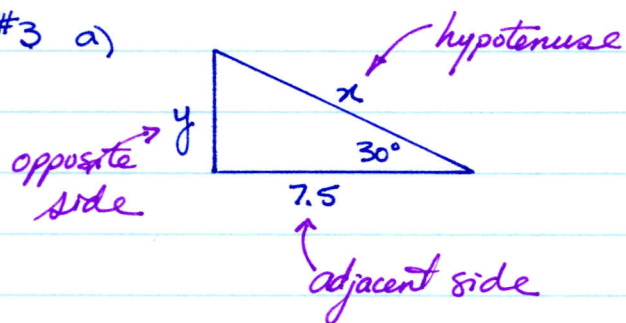 #3 a)
hypotenuse
x
y
30°
opposite
side
7.5
adjacent side